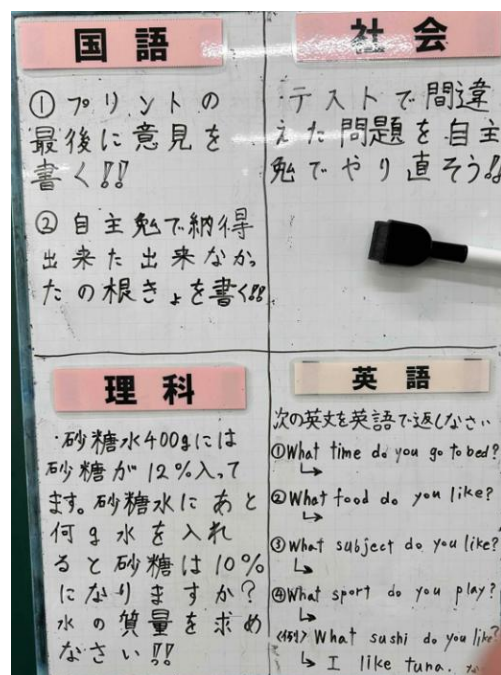 国語
①プリントの
最後に意見を
書く!!
②自主勉で納得
出来た出来なかっ
たの根きょを書く!!
社会
テストで間違
えた問題を自主
勉でやり直そう!!
理科
・砂糖水400gには
砂糖が12%入って
ます。砂糖水にあと
何g水を入れ
ると砂糖は10%
になりますか?
水の質量を求め
なさい!!
英語
次の英文を英語で返しなさい
①What time do you go to bed?
↳
②What food do you like?
↳
③What subject do you like?
↳
④What sport do you play?
↳
<例> What sushi do you like?
↳ I like tuna.